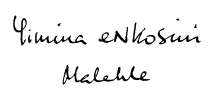 Yimina eNkosini
Malehle